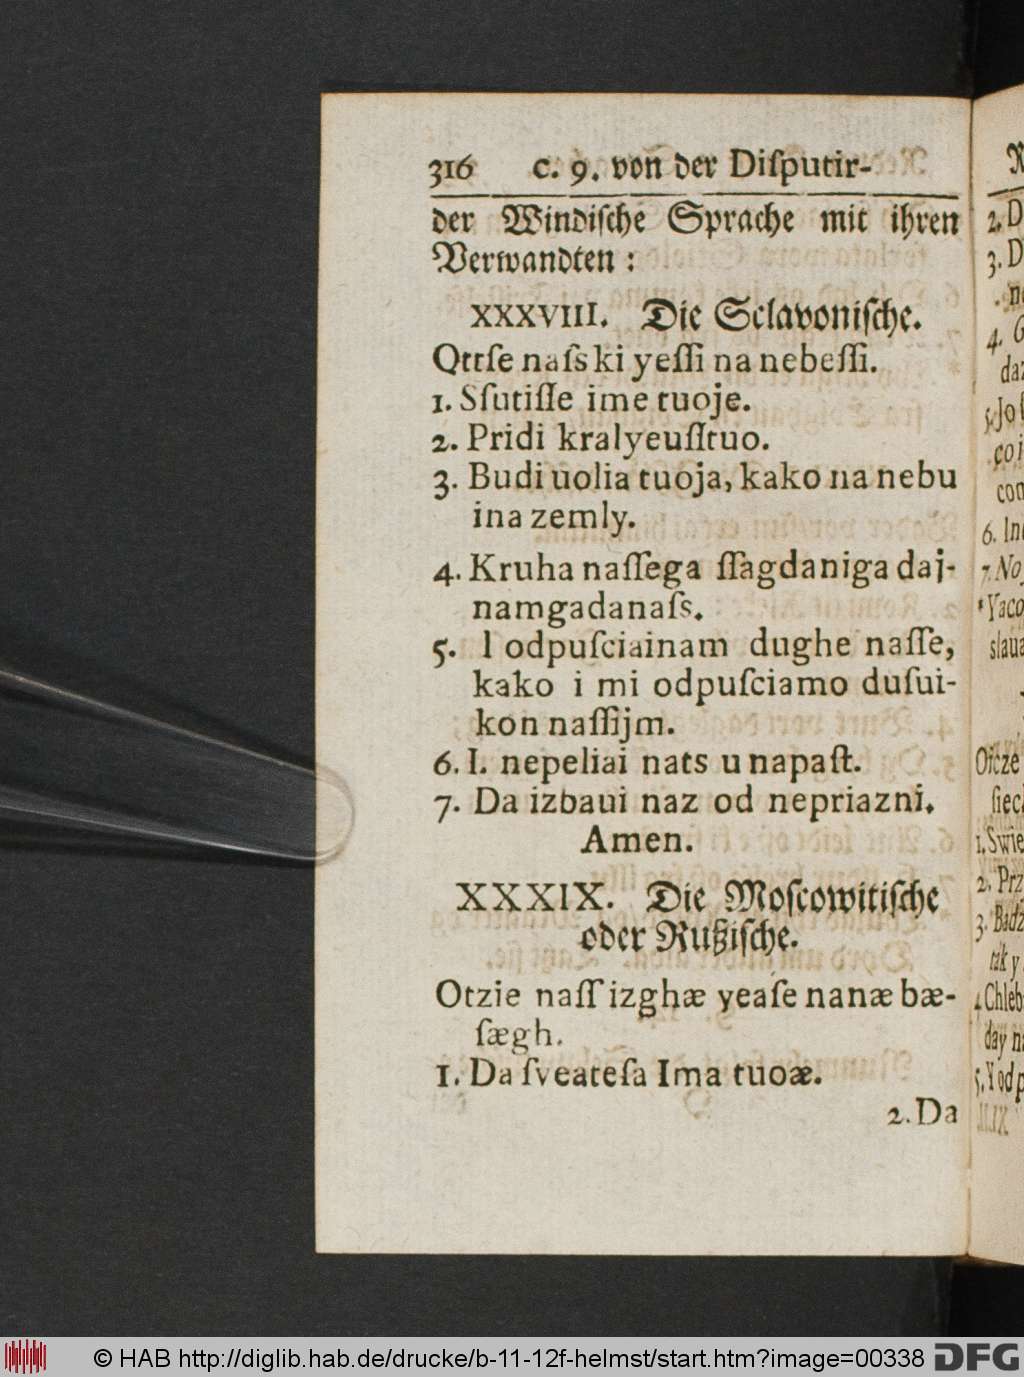 316 c. 9. von der Diſputir-
der Windiſche Sprache mit ihren
Verwandten:
XXXVIII. Die Sclavoniſche.
Qttſe naſs ki yeſſi na nebeſſi.
1. Sſutiſſe ime tuoje.
2. Pridi kralyeuſtuo.
3. Budi uolia tuoja, kako na nebu
ina zemly.
4. Kruha naſſega ſſagdaniga daj-
namgadanaſs.
5. I odpuſciainam dughe naſſe,
kako i mi odpuſciamo duſui-
kon naſſijm.
6. I. nepeliai nats u napaſt.
7. Da izbaui naz od nepriazni.
Amen.
XXXIX. Die Moſcowitiſche
oder Rußiſche.
Otzie naſſ izghæ yeaſe nanæ bæ-
ſægh.
1. Da ſveateſa Ima tuoæ.
2. Da
2. D
3. D
4.
daz
5. Jo
con
6. In
7. No
*Yaco
slaua
Oicze
ſiec
1. Swie
2. Prz
3. Badź
tak y
4. Chleb
day n
5. Y odp
© HAB http://diglib.hab.de/drucke/b-11-12f-helmst/start.htm?image=00338 DFG